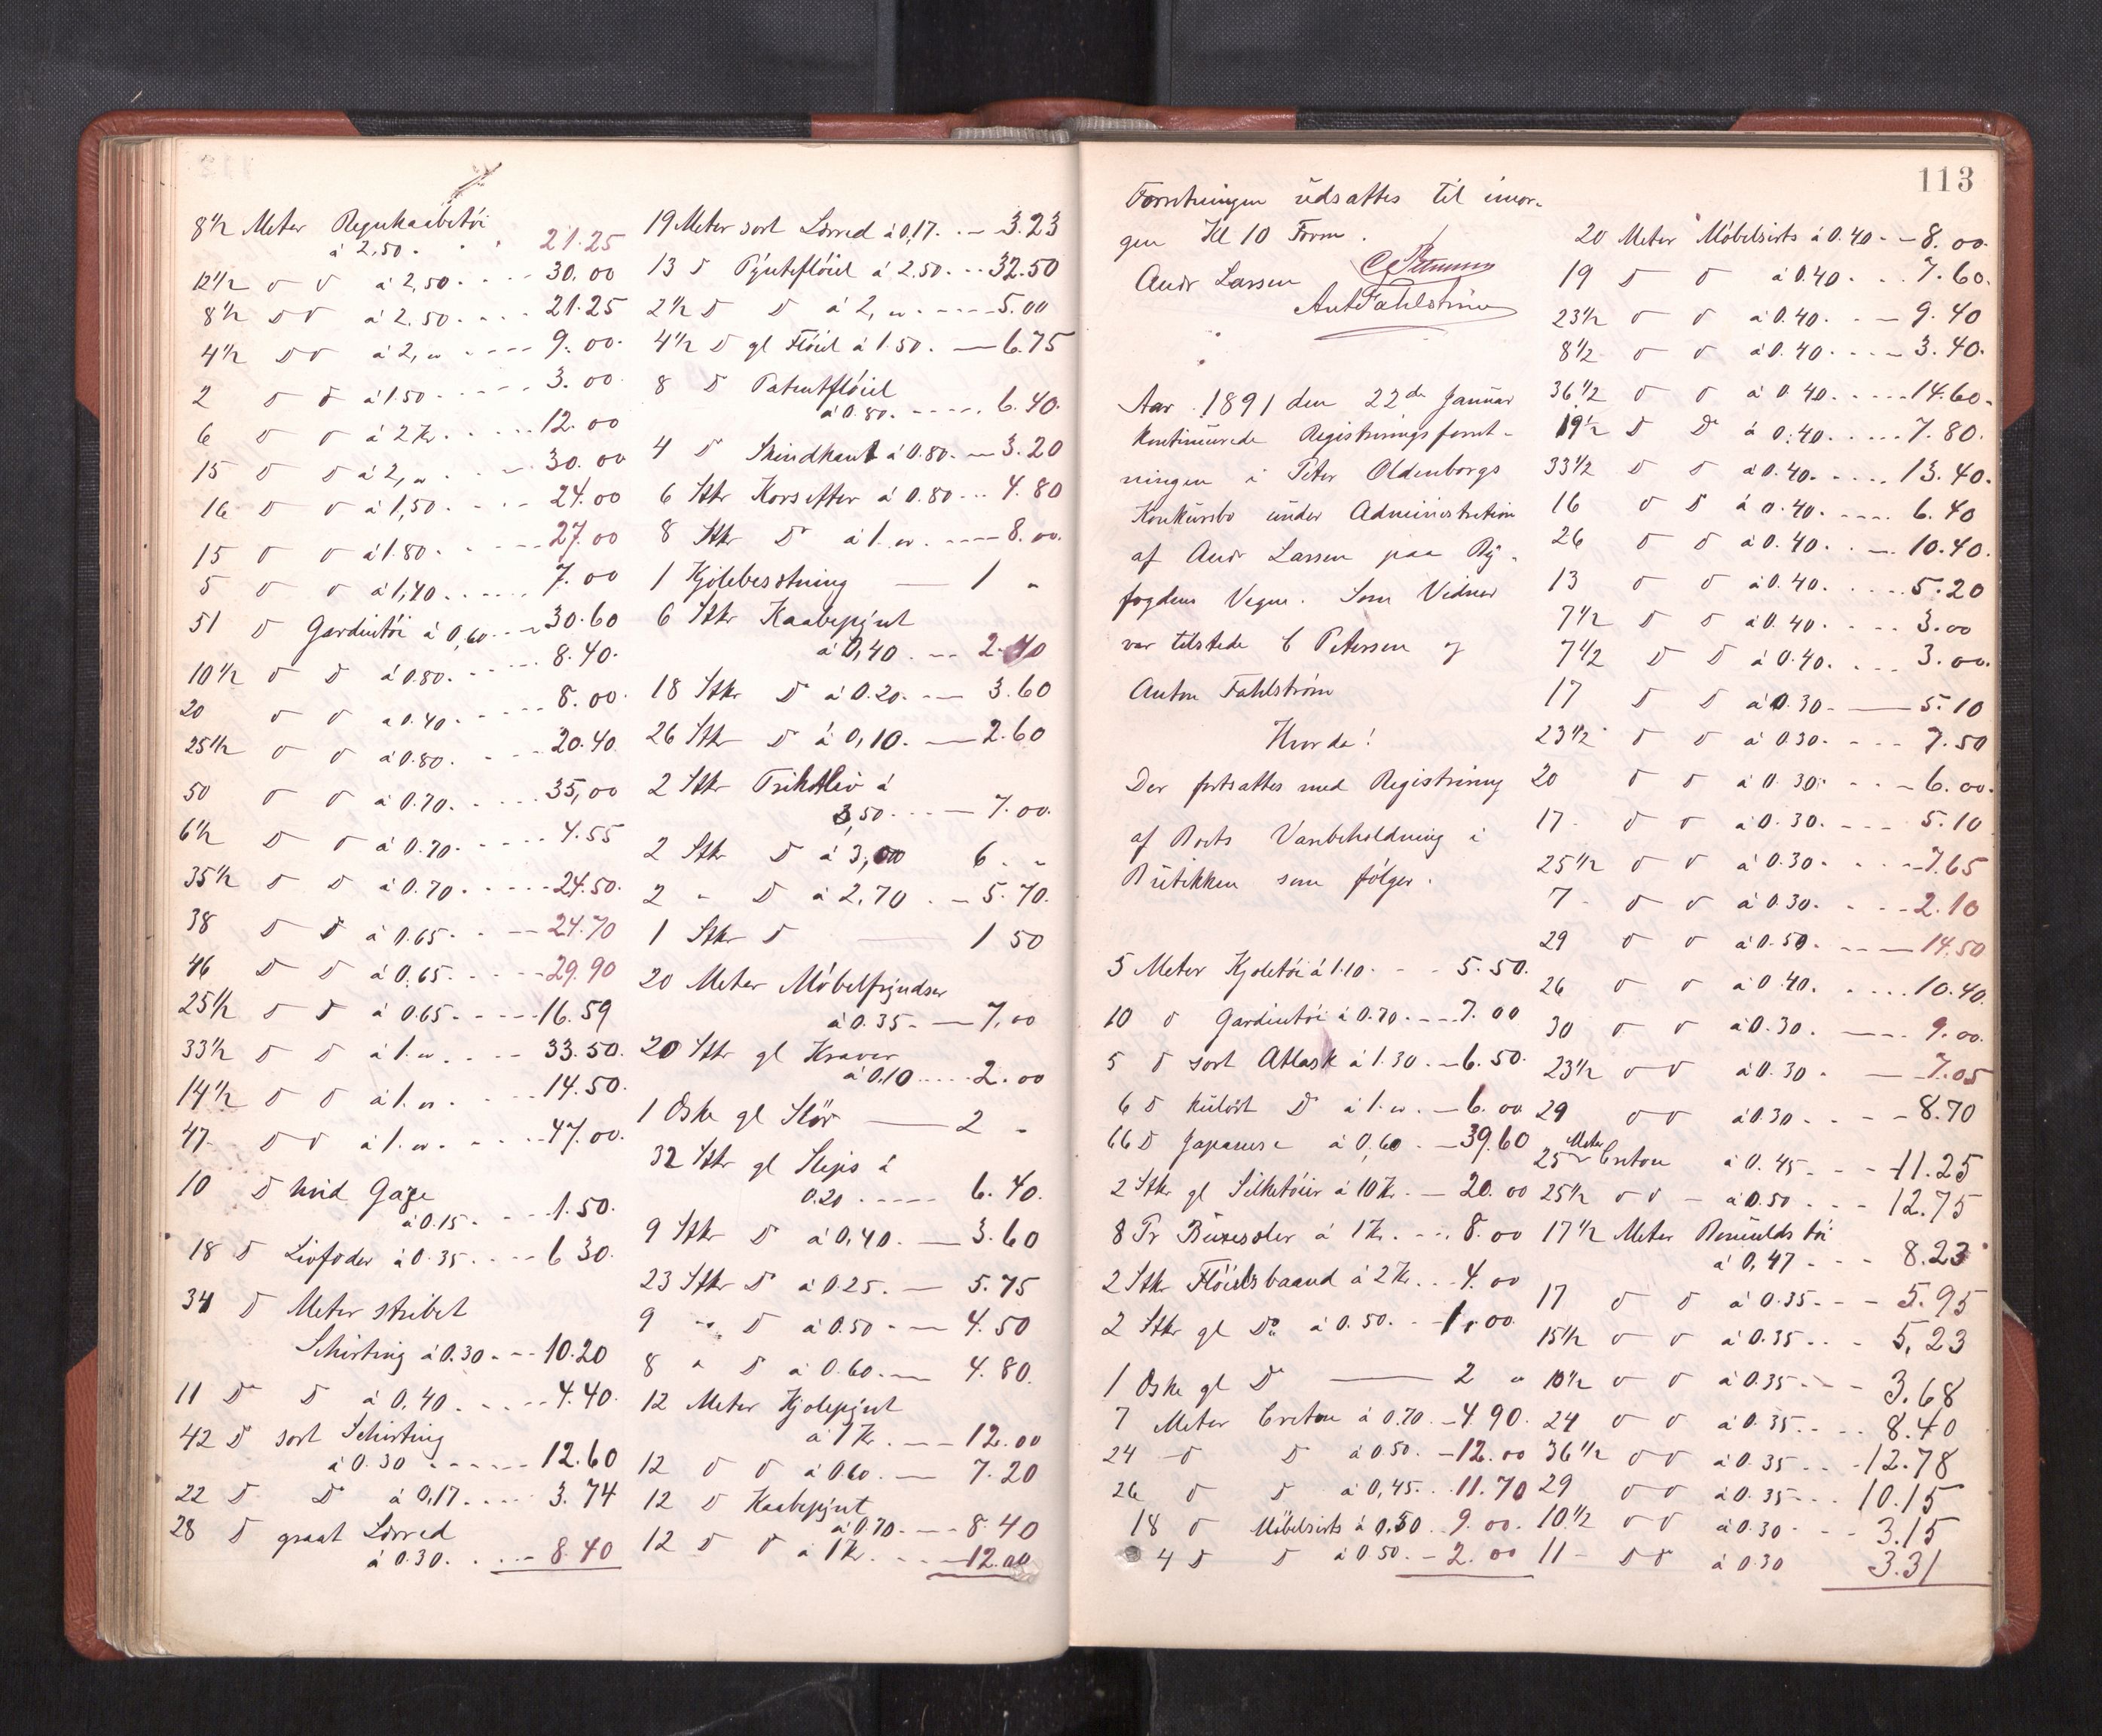 8 1/2 Meter Regnkaabetøi
à 2,50. 21.25
12 1/2 D D à 2,50. 30.00
8 1/2 D D à 2.50. 21.25
4 1/2 D D à 2, " 9.00.
2 D D à 1.50 3.00
6 D D à 2 Kr. 12.00
15 D D à 2, " 30.00
16 D D à 1,50. 24.00
15 D D à 1.80. 27.00
5 D D à 1,40. 7.00
51 D Gardintøi à 0,60. 30.60
10 1/2 D D à 0.80. 8.40.
20 D D à 0.40. 8.00.
25 1/2 D D à 0.80. 20.40
50 D D à 0.70. 35,00
6 1/2 D D à 0.70. 4.55
35 1/2 D D à 0.70. 24.50.
38 D D à 0.65. 24.70
46 D D à 0,65. 29.90
25 1/2 D D à 0.65. 16.59
33 1/2 D D à 1. " 33.50.
14 1/2 D D à 1. " 14.50.
47 D D à 1. " 47.00.
10 D hvid Gaze
à 0.15. 1.50.
18 D Livfoder à 0.35. 6 30.
34 D Meter stribet
Schirting à 0.30. 10.20
11 D D à 0,40. 4.40.
42 D sort Schirting
à 0.30 12.60
22 D D à 0,17. 3.74
28 D graat Lærred
à 0.30. 8.40
19 Meter sort Lærred à 0,17. 3.23
13 D Pyntefløiel à 2,50. 32.50
2 1/2 D D à 2, " 5.00
4 1/2 D gl Fløiel à 1.50. 6.75
8 D Patentfløiel
à 0.80. 6.40.
4 D Skindkant à 0.80. 3.20
6 Stkr Korsetter à 0.80. 4.80
8 Stkr D à 1. " 8.00.
1 Kjolebesætning 1 "
6 Stkr Kaabepynt
à 0,40. 2.40
18 Stkr D à 0.20. 3.60
26 Stkr D à 0,10. 2.60
2 Stkr Trikotliv à
3,50. 7.00.
2 Stkr D à 3,00 6. "
2 " D à 2,70. 5.70.
1 Stkr D 1 50
20 Meter Møbelfryndser
à 0.35. 7,00
20 Stkr gl Kraver
à 0,10 2.00
1 Æske gl Slør 2 "
32 Stkr gl Slips à
0.20 6.40.
9 Stkr D à 0,40. 3.60
23 Stkr D à 0.25. 5.75
9 " D à 0.50 4.50
8 " D à 0.60. 4.80.
12 Meter Kjolepynt
à 1 Kr. 12.00
12 D D à 0.60. 7.20
12 D Kaabepynt
à 0.70. 8.40
12 D D à 1 Kr. 12.00
113
Forretningen udsattes til imor-
gen Kl 10 Form.
Andr Larsen C Petersen
Ant Fahlstrøm
Aar 1891 den 22de Januar
kontinuerede Registreringsforret-
ningen i Peter Oldenborgs
Konkursbo under Administration
af Andr Larsen paa By-
fogdens Vegne. Som Vidner
var tilstede C Petersen og
Anton Fahlstrøm
Hvorda!
Der fortsattes med Registrering
af Boets Varebeholdning i
Butikken som følger.
5 Meter Kjoletøi à 1.10. 5.50.
10 D Gardintøi à 0.70. 7.00
5 D sort Atlask à 1.30. 6.50.
6 D kulørt D à 1. " 6.00
66 D Japanese à 0,60. 39.60
2 Stkr gl Silketøier à 10 Kr. 20.00
8 Pr Buxesoler à 1 Kr. 8.00
2 Stkr Fløielsbaand à 2 Kr. 4.00
2 Stkr gl Do à 0.50. 1.00
1 Æske gl D 2 "
7 Meter Creton à 0.70. 4.90.
24 D D à 0.50. 12.00
26 D D à 0,45. 11.70
18 D Møbelsirts à 0,50 9.00.
4 D D à 0.50. 2.00
20 Meter Møbelsirts à 0.40. 8.00.
19 D D à 0.40. 7.60.
23 1/2 D D à 0.40. 9.40
8 1/2 D D à 0.40. 3.40.
36 1/2 D D à 0.40. 14.60.
19 1/2 D D à 0.40. 7.80.
33 1/2 D D à 0.40. 13.40.
16 D D à 0.40. 6.40
26 D D à 0.40. 10.40.
13 D D à 0.40. 5.20
7 1/2 D D à 0.40. 3.00
7 1/2 D D à 0.40. 3.00.
17 D D à 0.30. 5.10
23 1/2 D D à 0.30. 7.50
20 D D à 0.30. 6.00.
17 D D à 0.30. 5.10
25 1/2 D D à 0.30. 7.65
7 D D à 0.30. 2.10
29 D D à 0.50. 14.50
26 D D à 0.40. 10.40.
30 D D à 0.30. 9.00.
23 1/2 D D à 0.30. 7.05
29 D D à 0.30 8.70
25 Meter Creton à 0.45. 11.25
25 1/2 D D à 0.50. 12.75
17 1/2 Meter Bomulds tøi
à 0,47 8.23
17 D D à 0.35. 5.95
15 1/2 D D à 0.35. 5,23
10 1/2 D D à 0.35. 3.68
24 D D à 0.35. 8.40
36 1/2 D D à 0.35. 12.78
29 D D à 0.35. 10.15
10 1/2 D D à 0.30. 3.15
11 D D à 0.30 3.31